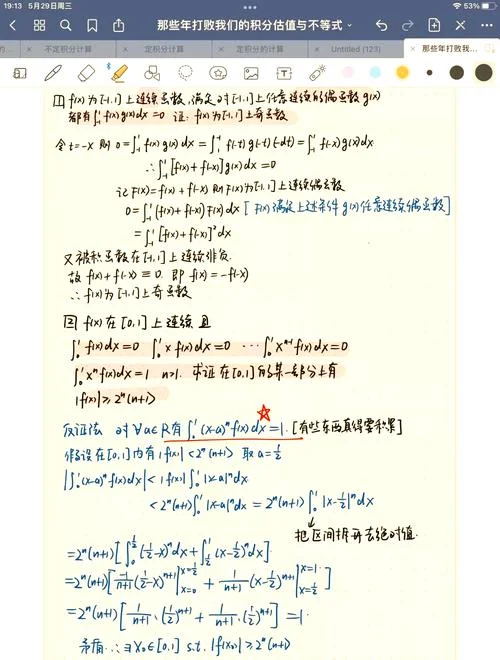 19:13 5月29日周三
53%
那些年打败我们的积分估值与不等式
不定积分计算 定积分计算 定积分的计算 Untitled (123) 那些年打败我们的积...
① f(x)为[-1,1]上连续函数,满足对[-1,1]上任意连续的偶函数g(x)
都有∫₋₁¹f(x)g(x)dx=0 证: f(x)为[-1,1]上奇函数
令t=-x 则 0=∫₋₁¹f(x)g(x)dx=∫₁⁻¹f(-t)g(-t)(-dt)=∫₋₁¹f(-x)g(x)dx
∴∫₋₁¹[f(x)+f(-x)]g(x)dx=0
记F(x)=f(x)+f(-x) 则F(x)为[-1,1]上连续偶函数
0=∫₋₁¹(f(x)+f(-x))F(x)dx [F(x)满足上述条件g(x)任意连续偶函数]
=∫₋₁¹[f(x)+f(-x)]²dx
又被积函数在[-1,1]上连续非负
故f(x)+f(-x)≡0 即f(x)=-f(-x)
∴f(x)为[-1,1]上奇函数
② f(x)在[0,1]上连续且
∫₀¹f(x)dx=0 ∫₀¹xf(x)dx=0 ⋯∫₀¹xⁿ⁻¹f(x)dx=0
∫₀¹xⁿf(x)dx=1 n>1. 求证在[0,1]的某一部分上有
|f(x)|≥2ⁿ(n+1)
反证法 对∀a∈R有∫₀¹(x-a)ⁿf(x)dx=1. [有些东西真得要积累]
假设在[0,1]内有|f(x)|<2ⁿ(n+1) 取a=½
|∫₀¹(x-a)ⁿf(x)dx|<|f(x)|∫₀¹|x-a|ⁿdx
<2ⁿ(n+1)∫₀¹|x-a|ⁿdx=2ⁿ(n+1)∫₀¹|x-½|ⁿdx
把区间拆开去绝对值.
=2ⁿ(n+1)[∫₀^½(½-x)ⁿdx+∫_½¹(x-½)ⁿdx]
=2ⁿ(n+1)[-1/(n+1)(½-x)ⁿ⁺¹|ₓ₌₀^x=½ + 1/(n+1)(x-½)ⁿ⁺¹|ₓ₌½^x=1]
=2ⁿ(n+1)[1/(n+1)·(½)ⁿ⁺¹+1/(n+1)·(½)ⁿ⁺¹]=1.
矛盾∴∃x₀∈[0,1] s.t. |f(x₀)|≥2ⁿ(n+1)